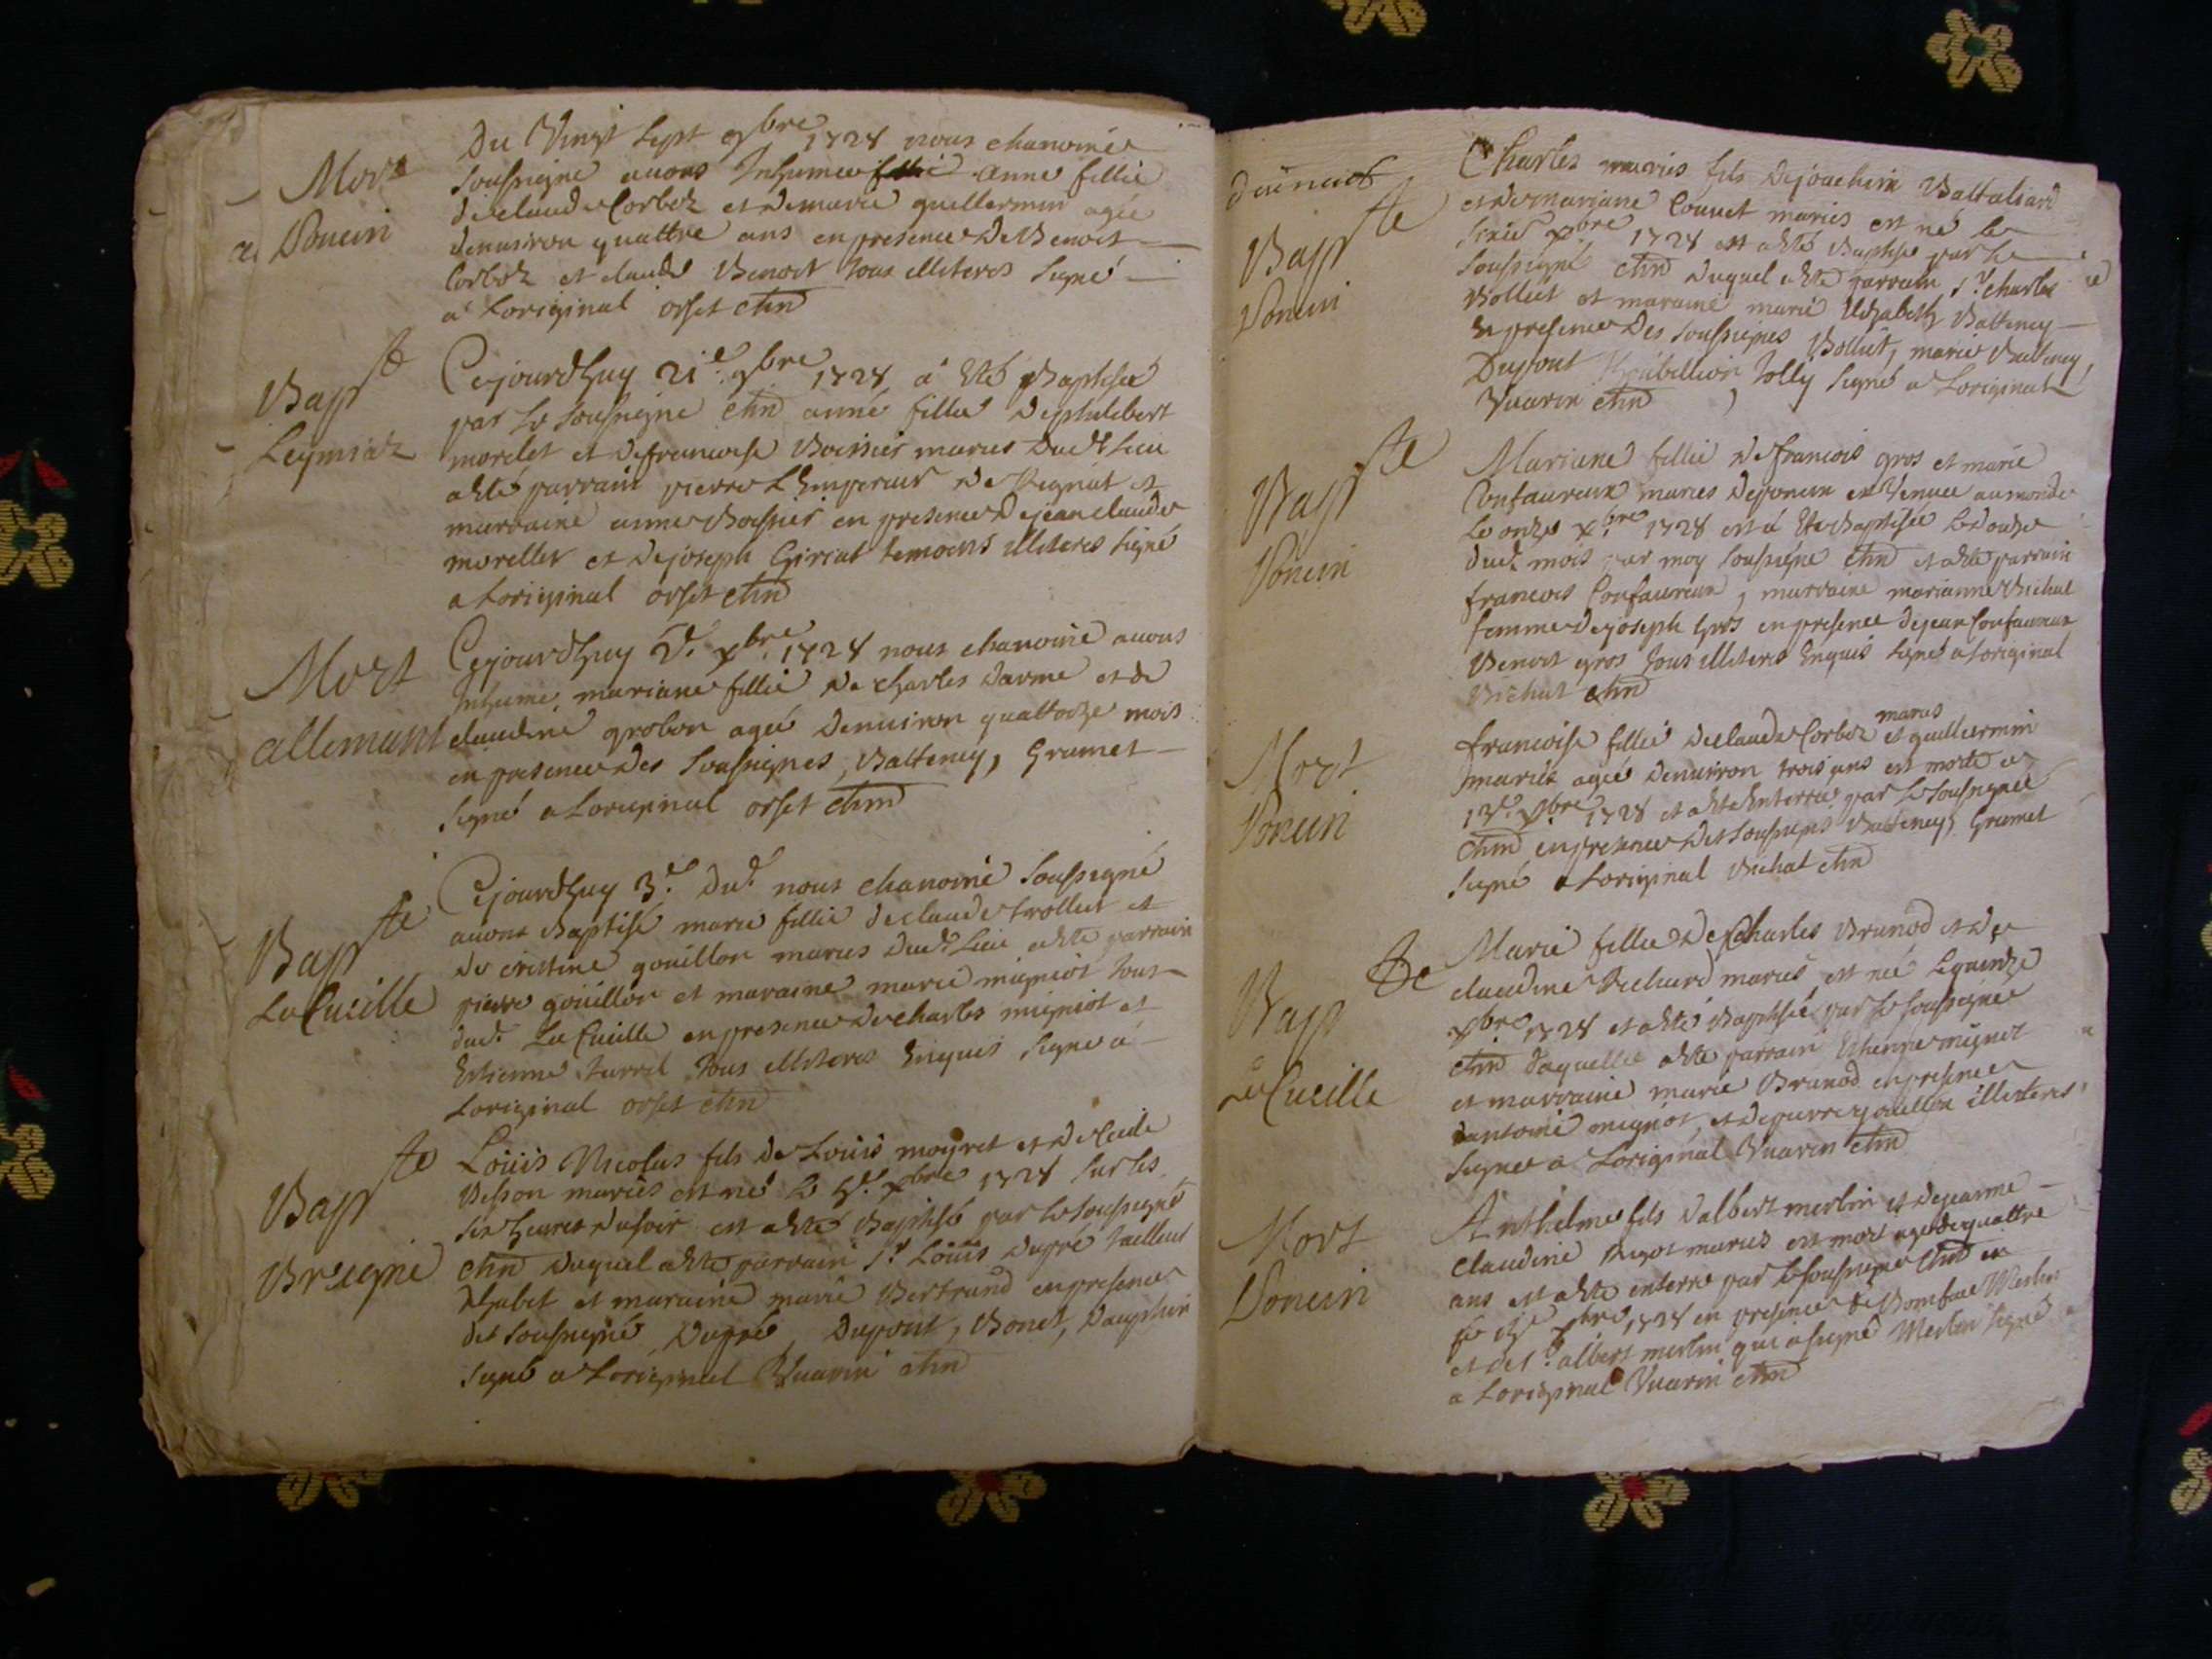 Mort
a Poncin
Du Vingt sept 9bre 1728 nous chanoine
soussigne avons Inhumee Anne fillie
de claude Corboz et de marie guillermin agée
denuiron quattre ans en presence De Benoit
Corboz et claude Benoit tous illiteres signé
a Loriginal orset chne
Bapte
Leymiaz
Cejourdhuy 21e 9bre 1728 a Eté Baptisée
par le soussigne chne anne fillie de philibert
morelet et de francoise Boissier maries dud lieu
a été parrain pierre L'Empereur de Regnat et
marraine anne Boissier en presence De jean claude
morellet et de joseph Guriat temoins illiteres signé
a Loriginal orset chne
Mort
allement
Cejourdhuy 2e xbre 1728 nous chanoine auons
Inhumé mariane fillie de charles Darme et de
claudine grobon agée denuiron quattorze mois
en presence Des soussignes, Battency, Gramet
signé a Loriginal orset chne
Bapte
La Cueille
Cejourdhuy 3e dud. nous chanoine soussigné
auons Baptisé marie fillie de claude trollet et
de cristine gouillon maries dud. Lieu a été parrain
pierre goüillon et maraine marie migniot tous
dud. La Cueille en presence De charles migniot et
Estienne turrel tous illiteres Enquis signe a
Loriginal orset chne
Bapte
Breigne
Loüis Nicolas fils de Loüis moyret et de
Besson mariés est né le xbre 1728 sur les
six heures du soir est a été Baptisé par le soussigné
chne duquel a été parrain Sr Loüis Dupré tailleur
d'habit et maraine marie Bertrand en presence
des soussigné Dupré, Dupont, Bonet, Dauphin
signé a Loriginal Vuarin chne
Bapte
Poncin
Charles maries fils de joachim Battaliard
et de mariane Couuet mariés est né le
xbre 1728 est a été Baptisé par le
soussigné chne duquel a été parrain Sr charles
Bolliet et maraine marie Elizabeth Battency
En presence Des soussignés Bolliet, marie Battency
Dupont Jolly signé a Loriginal
Vuarin chne
Bapte
Poncin
Mariane fillie de francois gros et marie
Confaureux maries de poncin est Venue au monde
Le onze xbre 1728 est a Ete Baptisée Le douze
dud. mois par moy soussigné chne et a été parrain
francois Confaureux, marraine marianne Vichat
femme de joseph Gros en presence de jean Confaureux
Benoit gros tous illiteres Enquis signé a Loriginal
Vichat chne
Mort
Poncin
francoise fillie de claude Corboz et marie guillermin
mariés agée denuiron trois ans est morte a
xbre 1728 et a été Enterrée par le soussignee
chne en presence Des soussignés Battency, Gramet
signé a Loriginal Vichat chne
Bapte
La Cueille
Marie fillie De Charles Brunod et De
claudine Richard mariés est née le quinze
xbre 1728 et a été Baptisée par le soussignée
chne Laquelle a été parrain Etienne mignot
et marraine marie Brunod en presence
dantoine mignot, et de pierre gouillon illiteres
signé a Loriginal Vuarin chne
Mort
Poncin
Anthelme fils d'albert merlin et de jeanne
claudine Rigot mariés est mort agé de quattre
ans est a été enterré par le soussigné chne en
xbre 1728 en presence de Merlin
et de Sr albert merlin qui a signé Merlin signé
a Loriginal Vuarin chne